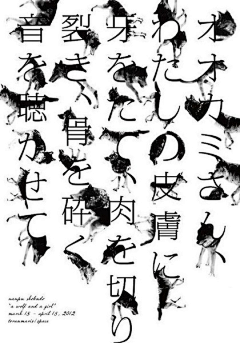 オオカミさん
わたしの皮膚に
牙をたて、肉を切り
裂き、骨を砕く
音を聴かせて
"a wolf and a girl"
march 15 - april 15, 2012